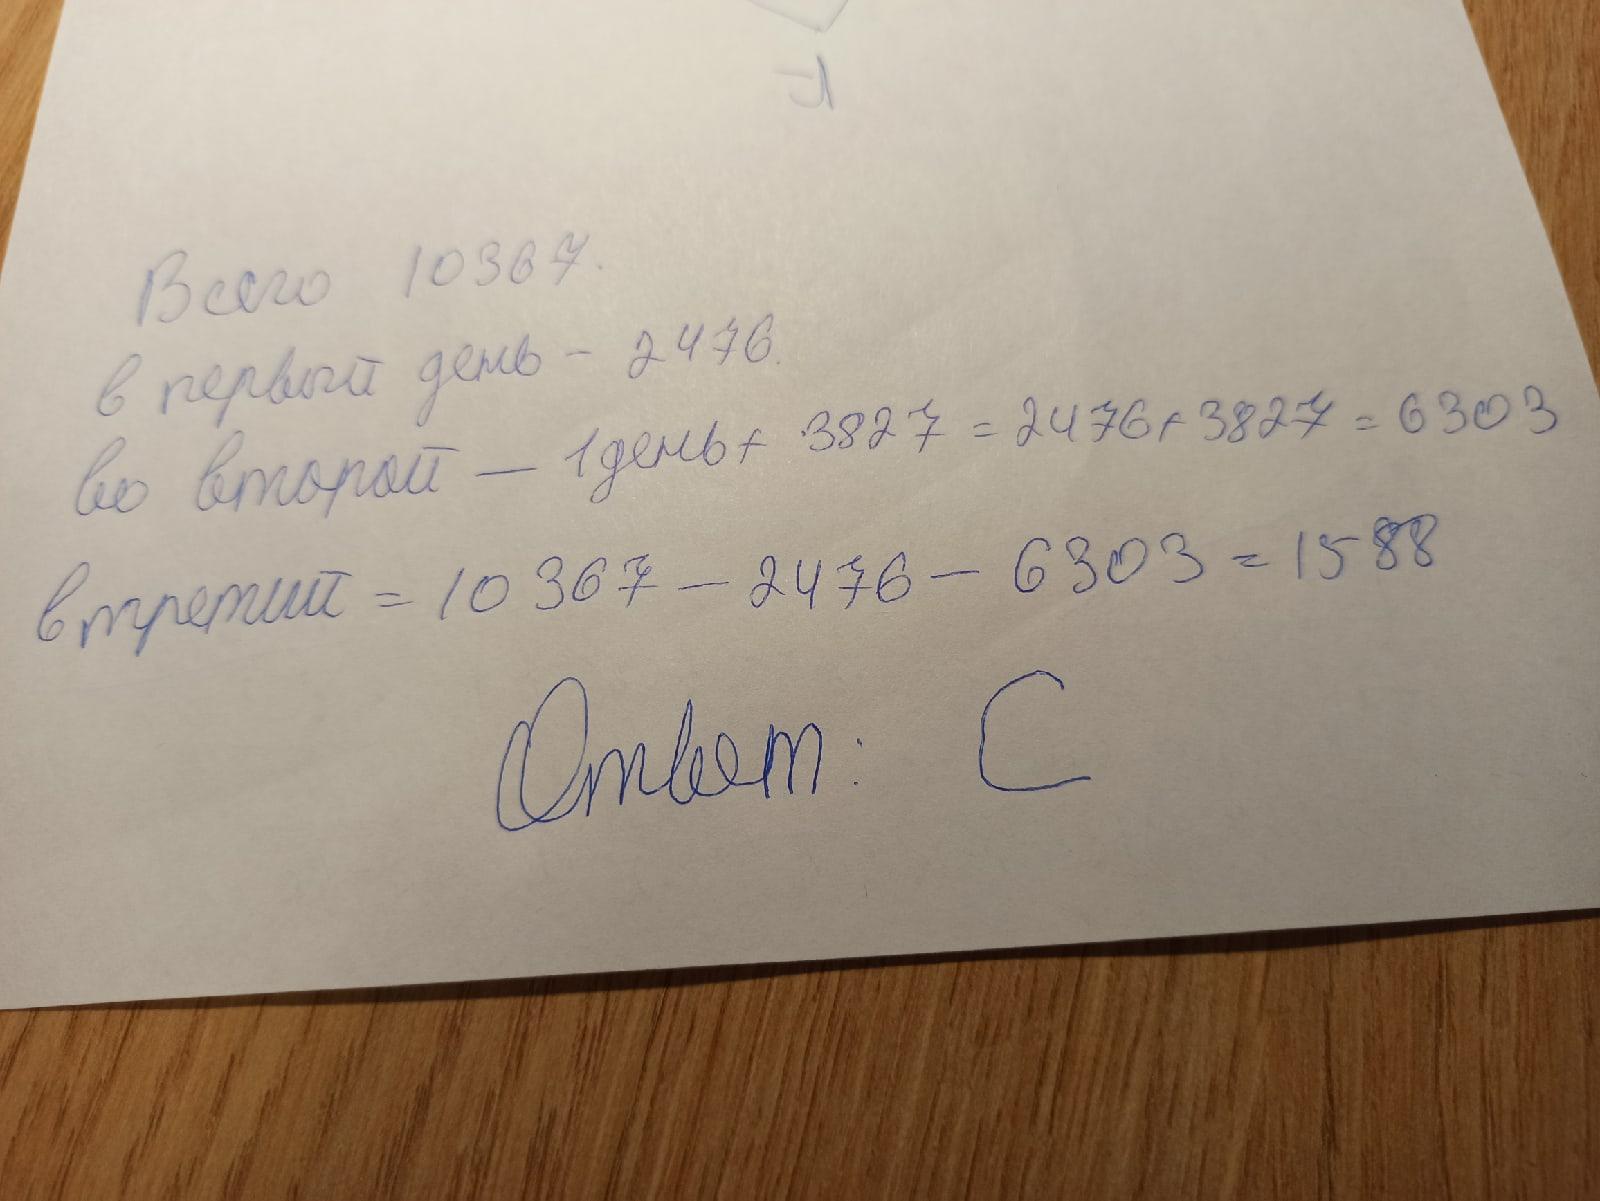 Всего 10367.
в первый день - 2476.
во второй — 1 день + 3827 = 2476 + 3827 = 6303
в третий = 10367 — 2476 — 6303 = 1588
Ответ: С